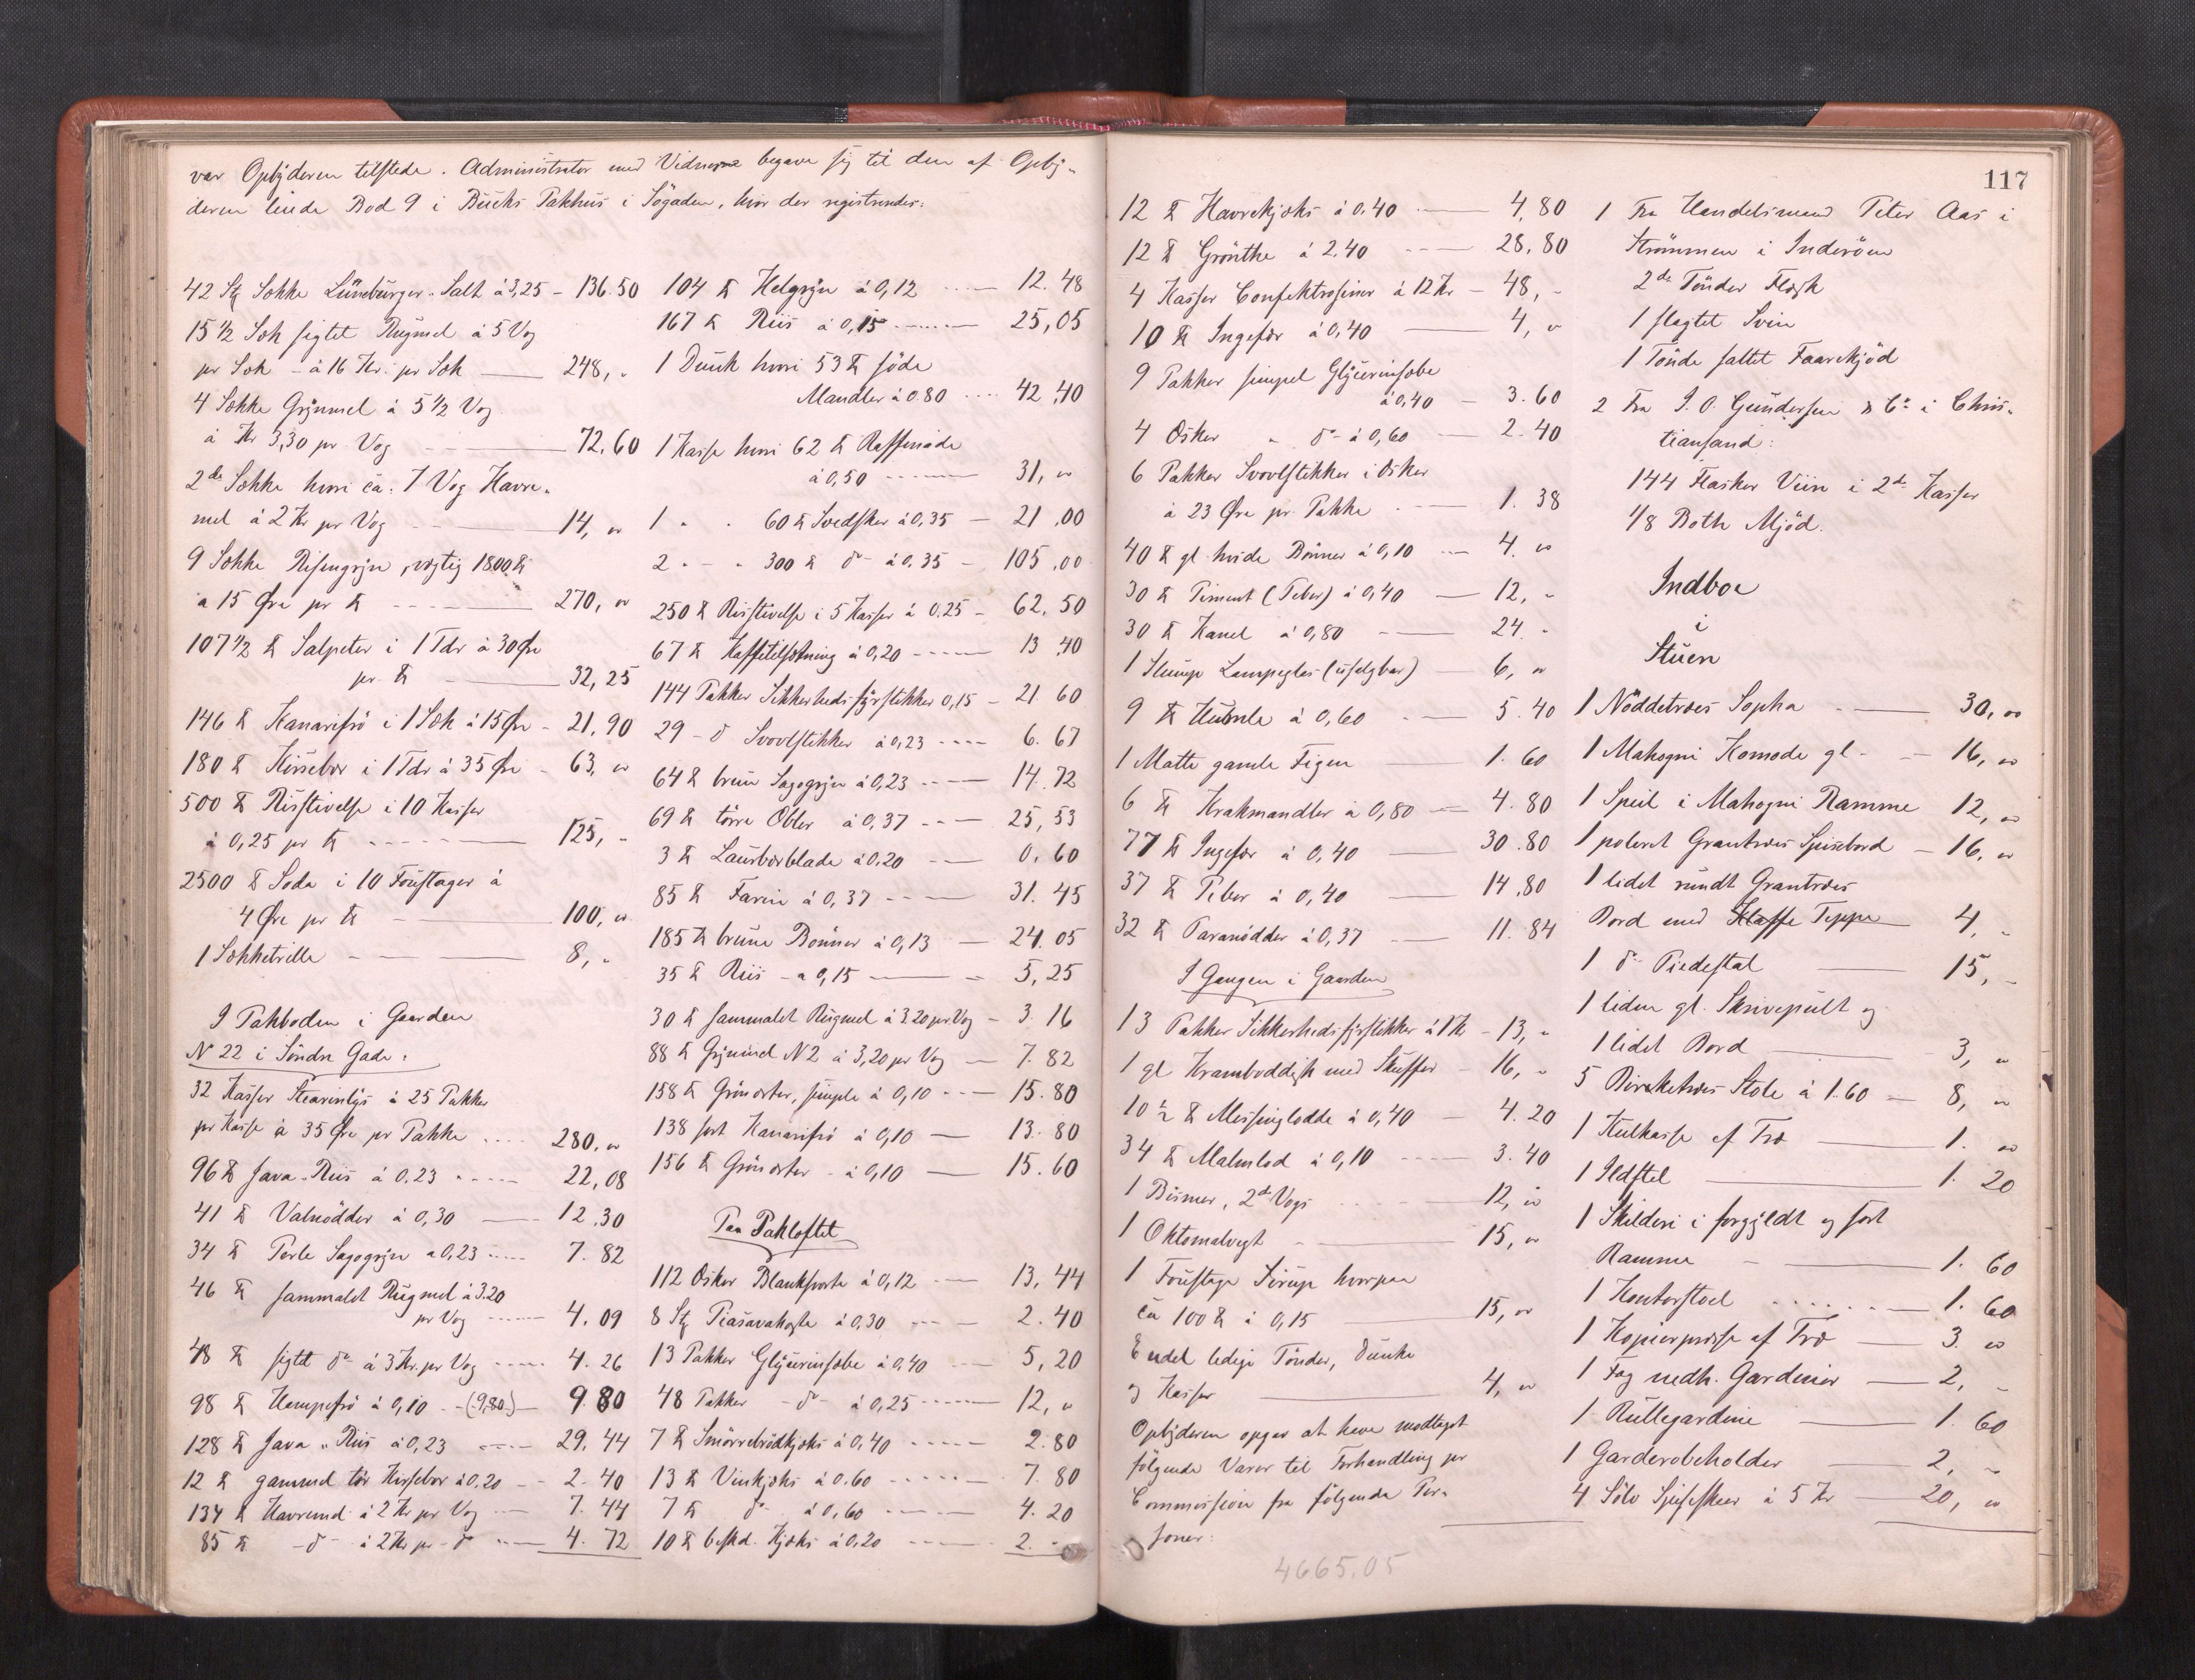 var Opbyderen tilstede. Administrator med Vidnerne begave sig til den af Opby-
deren leiede Bod 9 i Bücks Pakhus i Søgaden, hvor der registreredes:
42 St Sække Lüneburger-Salt à 3,25 - 136.50
15 1/2 Sæk sigtet Rugmel à 5 Vog
pr Sæk - à 16 Kr. pr Sæk 248, "
4 Sække Grynmel à 5 1/2 Vog
à Kr 3,30 pr Vog 72,60
2de Sække hvori ca. 7 Vog Havre-
mel à 2 Kr pr Vog 14, "
9 Sække Risengryn, vægtig 1800 ℔
a 15 Øre pr ℔ 270, "
107 1/2 ℔ Salpeter i 1 Tdr à 30 Øre
pr ℔ 32,25
146 ℔ Kanarifrø i 1 Sæk à 15 Øre - 21,90
180 ℔ Kirsebær i 1 Tdr à 35 Øre - 63, "
500 ℔ Risstivelse i 10 Kasser
à 0,25 pr ℔ 125, "
2500 ℔ Soda i 10 Foustager à
4 Øre pr ℔ 100, "
1 Sækketrille 8, "
I Pakboden i Gaarden
N 22 i Søndre Gade:
32 Kasser Stearinlys à 25 Pakker
pr Kasse à 35 Øre pr Pakke 280, "
96 ℔ Java-Riis à 0.23 22,08
41 ℔ Valnødder à 0,30 12.30
34 ℔ Perle Sagogryn a 0,23 7.82
46 ℔ sammalet Rugmel à 3.20
pr Vog 4.09
48 ℔ sigtet do à 3 Kr. pr Vog 4.26
98 ℔ Hampefrø à 0,10 - (9,80) - 9.80
128 ℔ Java-Riis à 0,23 29,44
12 ℔ gammel tør Kirsebær à 0,20 - 2.40
134 ℔ Havremel à 2 Kr pr Vog 7.44
85 ℔ - do - à 2 Kr pr - do 4.72
104 ℔ Helgryn à 0,12 12.48
167 ℔ Riis à 0,15 25,05
1 Dunk hvori 53 ℔ søde
Mandler à 0.80 42,40
1 Kasse hvori 62 ℔ Raffinade
à 0,50 31, "
1 " " 60 ℔ Svedsker à 0,35 - 21,00
2 " - " 300 ℔ do - à 0.35 - 105,00
250 ℔ Risstivelse i 5 Kasser à 0.25 - 62.50
67 ℔ Kaffetilsætning à 0,20 13,40
144 Pakker Sikkerhedsfyrstikker 0,15 - 21.60
29 - do Svovlstikker à 0,23 6.67
64 ℔ brune Sagogryn à 0,23 14.72
69 ℔ tørre Æbler à 0,37 25,53
3 ℔ Laurbærblade à 0.20 0.60
85 ℔ Farin à 0,37 31.45
185 ℔ brune Bønner à 0,13 24.05
35 ℔ Riis - a 0,15 5,25
30 ℔ sammalet Rugmel à 3.20 pr Vog - 3.16
88 ℔ Grynmel N 2 à 3,20 pr Vog 7.82
158 ℔ Grønerter, simple à 0,10 15.80
138 sort Kanarifrø à 0,10 13.80
156 ℔ Grønerter - à 0,10 15.60
Paa Pakloftet
112 Æsker Blanksverte à 0,12 13,44
8 St Piasavakoste à 0,30 2.40
13 Pakker Glycerinsæbe à 0.40 5,20
48 Pakker - do - à 0,25 12, "
7 ℔ Smørrebrødkjæks à 0,40 2.80
13 ℔ Vinkjæks à 0.60 7.80
7 ℔ do - à 0,60 4.20
10 ℔ beskd. Kjæks à 0,20 2. -
117
12 ℔ Havrekjæks à 0,40 4,80
12 ℔ Grønthe à 2.40 28,80
4 Kasser Confektrosiner à 12 Kr - 48, -
10 ℔ Ingefær à 0,40 4, "
9 Pakker simpel Glycerinsæbe
à 0,40 - 3.60
4 Æsker " do - à 0,60 2.40
6 Pakker Svovlstikker i Æsker
à 23 Øre pr Pakke 1.38
40 ℔ gl. hvide Bønner à 0,10 4. "
30 ℔ Piment (Peber) à 0,40 12, "
30 ℔ Kanel à 0,80 24. "
1 Slump Lampeglas (usælgbar) 6, "
9 ℔ Humle à 0,60 5.40
1 Matte gamle Figen 1.60
6 ℔ Krakmandler à 0,80 4.80
77 ℔ Ingefær à 0,40 30.80
37 ℔ Peber à 0,40 14,80
32 ℔ Paranødder à 0,37 11.84
I Gangen i Gaarden
13 Pakker Sikkerhedsfyrstikker à 1 Kr - 13, "
1 gl Krambоddisk med Skuffer - 16, "
10 1/2 ℔ Messinglodde à 0,40 4.20
34 ℔ Malmlod à 0,10 3.40
1 Bismer, 2de Vogs 12, "
1 Oktomalvegt 15, "
1 Foustage Sirup hvorpaa
ca 100 ℔ à 0,15 15, "
Endel ledige Tønder, Dunke
og Kasser 4, "
Opbyderen opgav at have modtaget
følgende Varer til Forhandling pr
Commission fra følgende Per-
soner:
4665.05
1 Fra Handelsmand Peter Aas i
Strømmen i Inderøen
2de Tønder Flesk
1 slagtet Svin
1 Tønde saltet Faarekjød
2 Fra I. O. Gundersen & Co i Chris-
tiansand:
144 Flasker Viin i 2de Kasser
1/8 Both Mjød.
Indboe
i
Stuen
1 Nøddetræes Sopha 30, "
1 Mahogni Komode gl - 16, "
1 Speil i Mahogni Ramme 12, "
1 poleret Grantræes Spisebord - 16, "
1 lidet rundt Grantræes
Bord med Klaffe Teppe 4, "
1 do Piedestal 15, -
1 liden gl. Skrivepult og
1 lidet Bord 3, "
5 Birketræes Stole à 1.60 8, "
1 Kulkasse af Træ 1. "
1 Ildstel 1.20
1 Skilderi i forgyldt og sort
Ramme 1.60
1 Kontorstoel 1.60
1 Kopierpresse af Træ 3. "
1 Fag nedh. Gardiner 2, -
1 Rullegardine 1.60
1 Garderobeholder 2, "
4 Sølv Spiseskeer à 5 Kr 20, "